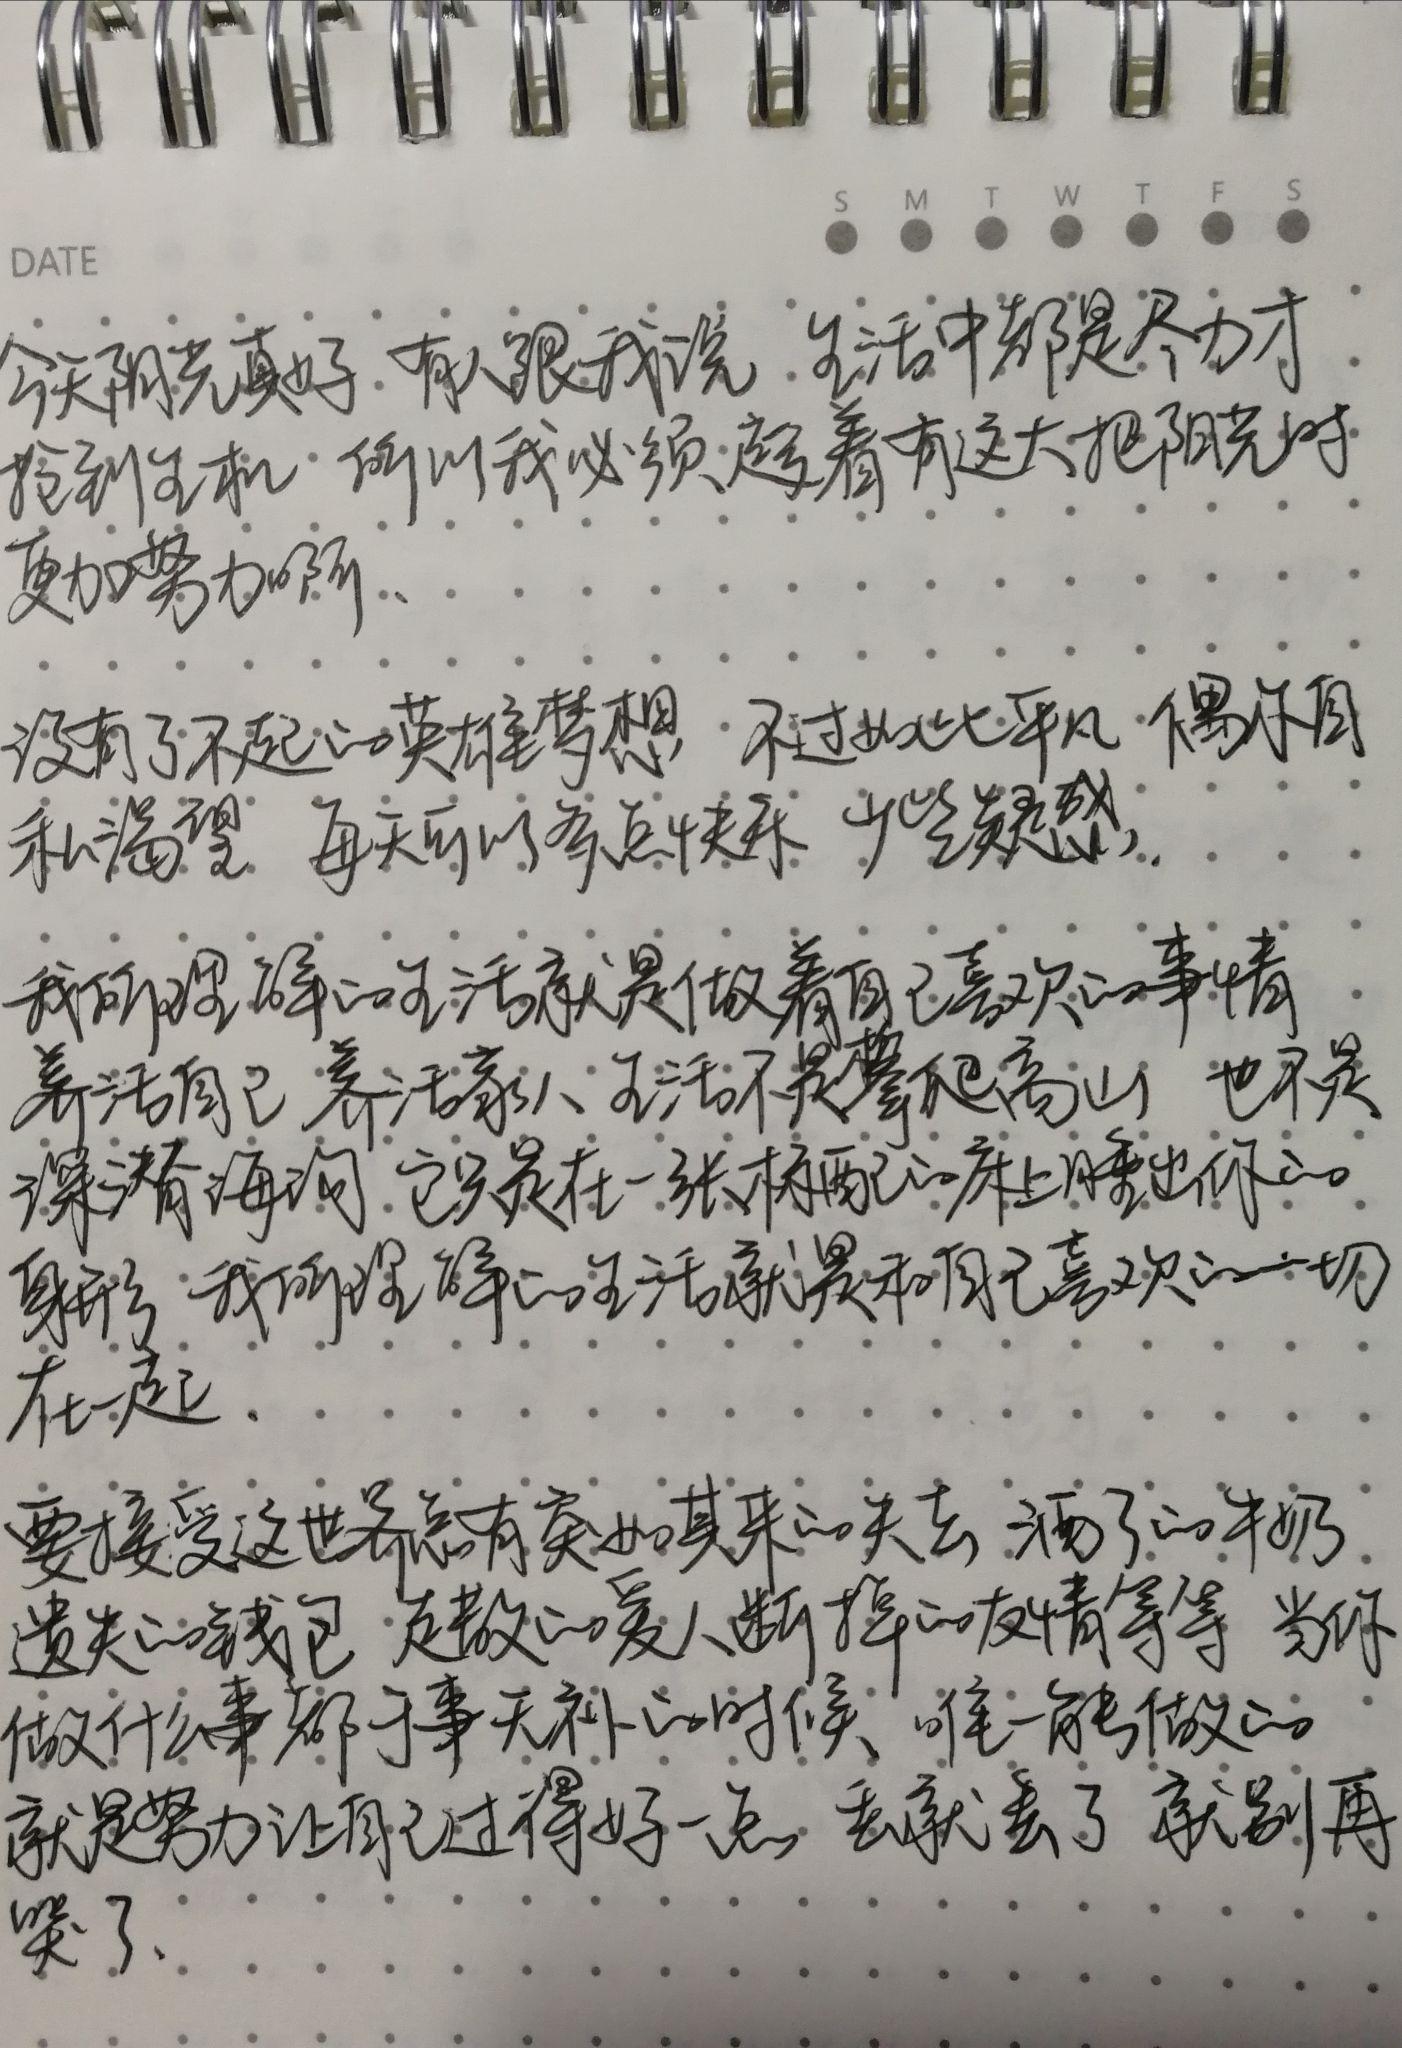 S M T W T F S
DATE
今天阳光真好 有人跟我说 生活中都是尽力才
抢到生机 所以我必须趁着有这大把阳光时
更加努力啊、
没有了不起的英雄梦想 不过如此平凡 偶尔自
私渴望 每天可以多点快乐 少些疑惑,
我所理解的生活就是做着自己喜欢的事情
养活自己 养活家人、生活不是攀爬高山 也不是
深潜海沟 它只是在一张标配的床上睡出你的
身形 我所理解的生活就是和自己喜欢的一切
在一起.
要接受这世界总有突如其来的失去 洒了的牛奶
遗失的钱包 走散的爱人 断掉的友情等等 当你
做什么事都于事无补的时候、唯一能做的
就是努力让自己过得好一点 丢就丢了 就别再
哭了、